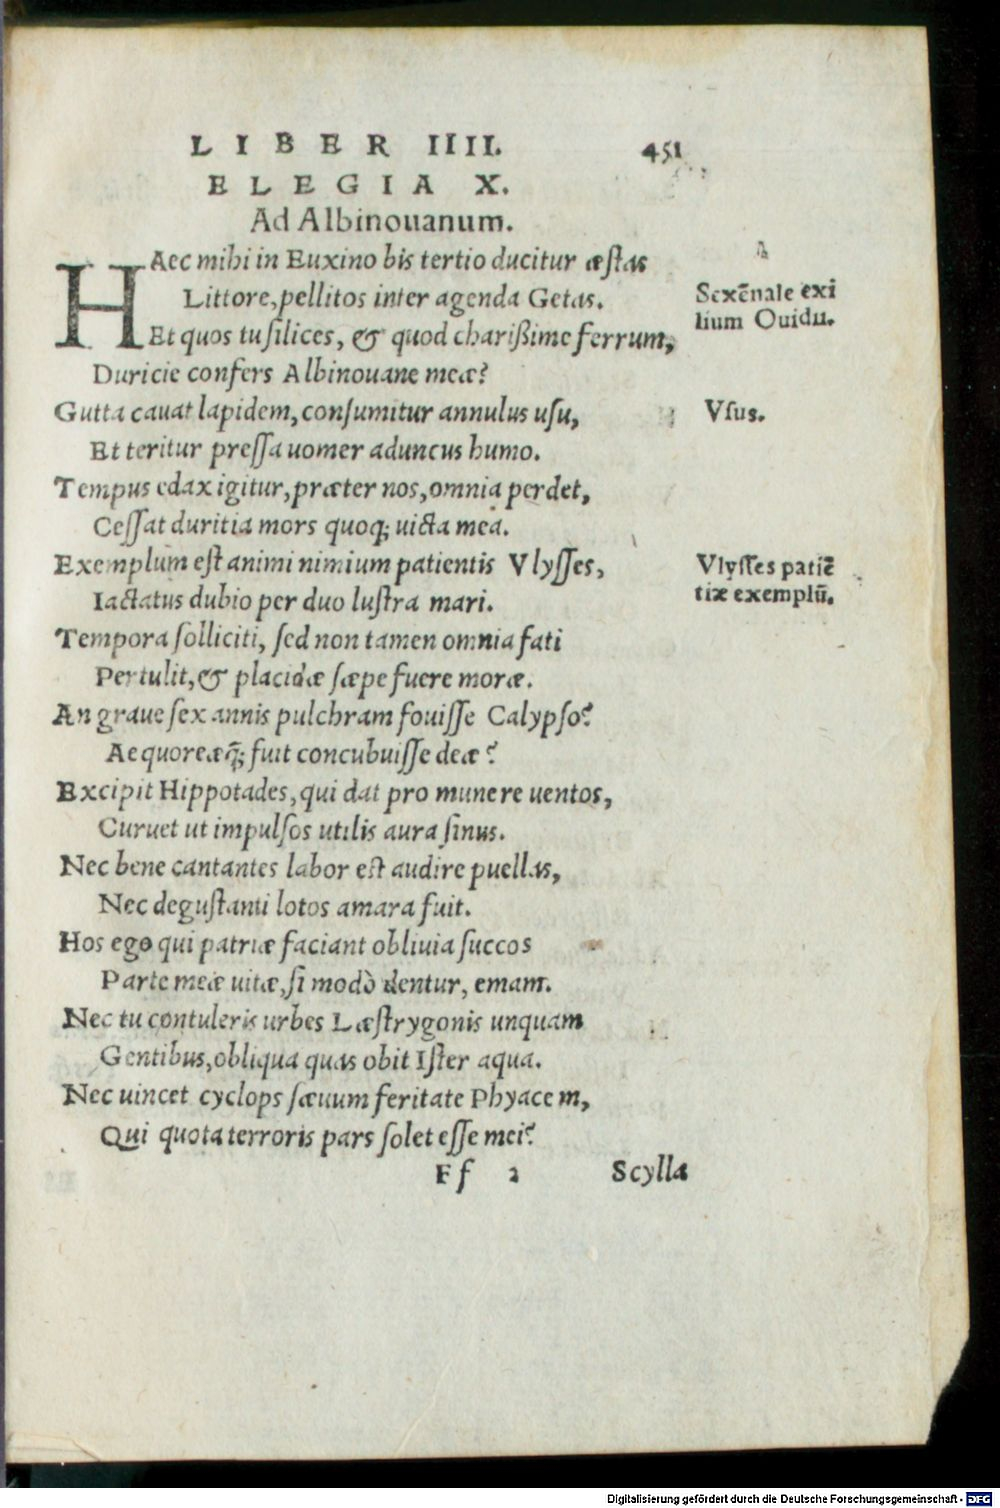 LIBER IIII. 451
ELEGIA X.
Ad Albinouanum.
HAec mihi in Euxino bis tertio ducitur æstas
Littore, pellitos inter agenda Getas.
Sexẽnale exi
lium Ouidii.
Et quos tu silices, & quod charißime ferrum,
Duricie confers Albinouane meæ?
Gutta cauat lapidem, consumitur annulus usu,
Vsus.
Et teritur pressa uomer aduncus humo.
Tempus edax igitur, præter nos, omnia perdet,
Cessat duritia mors quoq; uicta mea.
Exemplum est animi nimium patientis Vlysses,
Vlysses patiẽ
tiæ exemplũ.
Iactatus dubio per duo lustra mari.
Tempora solliciti, sed non tamen omnia fati
Pertulit, & placidæ sæpe fuere moræ.
An graue sex annis pulchram fouisse Calypso?
Aequoreæq̃; fuit concubuisse deæ?
Excipit Hippotades, qui dat pro munere uentos,
Curuet ut impulsos utilis aura sinus.
Nec bene cantantes labor est audire puellas,
Nec degustanti lotos amara fuit.
Hos ego qui patriæ faciant obliuia succos
Parte meæ uitæ, si modò dentur, emam.
Nec tu contuleris urbes Læstrygonis unquam
Gentibus, obliqua quas obit Ister aqua.
Nec uincet cyclops sæuum feritate Phyacem,
Qui quota terroris pars solet esse mei?
Ff 2 Scylla
Digitalisierung gefördert durch die Deutsche Forschungsgemeinschaft - DFG